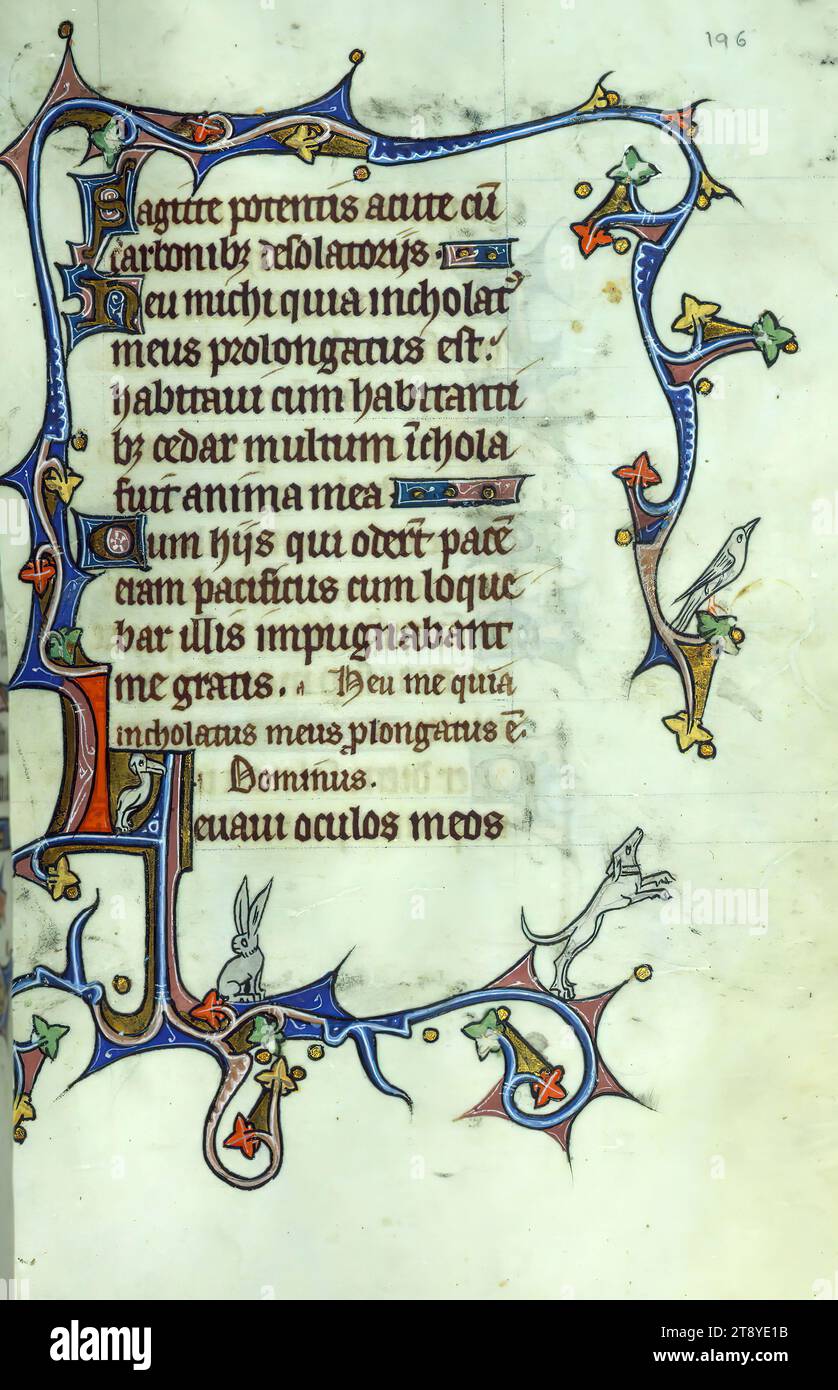 196
Sagitte potentis acute cū
carbonibꝫ desolatorijs
Heu michi quia incholatꝰ
meus prolongatus est.
habitaui cum habitanti
bꝫ cedar multum īchola
fuit anima mea
Cum hijs qui oder̄t pacē
eram pacificus cum loque
bar illis impugnabant
me gratis. Heu me quia
incholatus meus ꝓlongatus ē.
Dominus.
Leuaui oculos meos
alamy
alamy
Image ID: 2T8YE1B
www.alamy.com